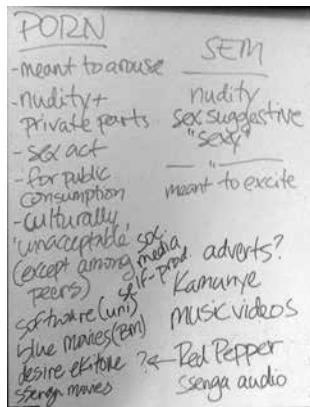 PORN
- meant to arouse
- nudity +
private parts
- sex act
- for public
consumption
- culturally
'unacceptable'
(except among
peers)
soc.
media
self-prod.
software (uni)
blue movies (BM)
desire ekitone ?←
ssenga moves
SEM
nudity
sex suggestive
"sexy"
— " —
meant to excite
adverts?
Kamunye
music videos
Red Pepper
ssenga audio